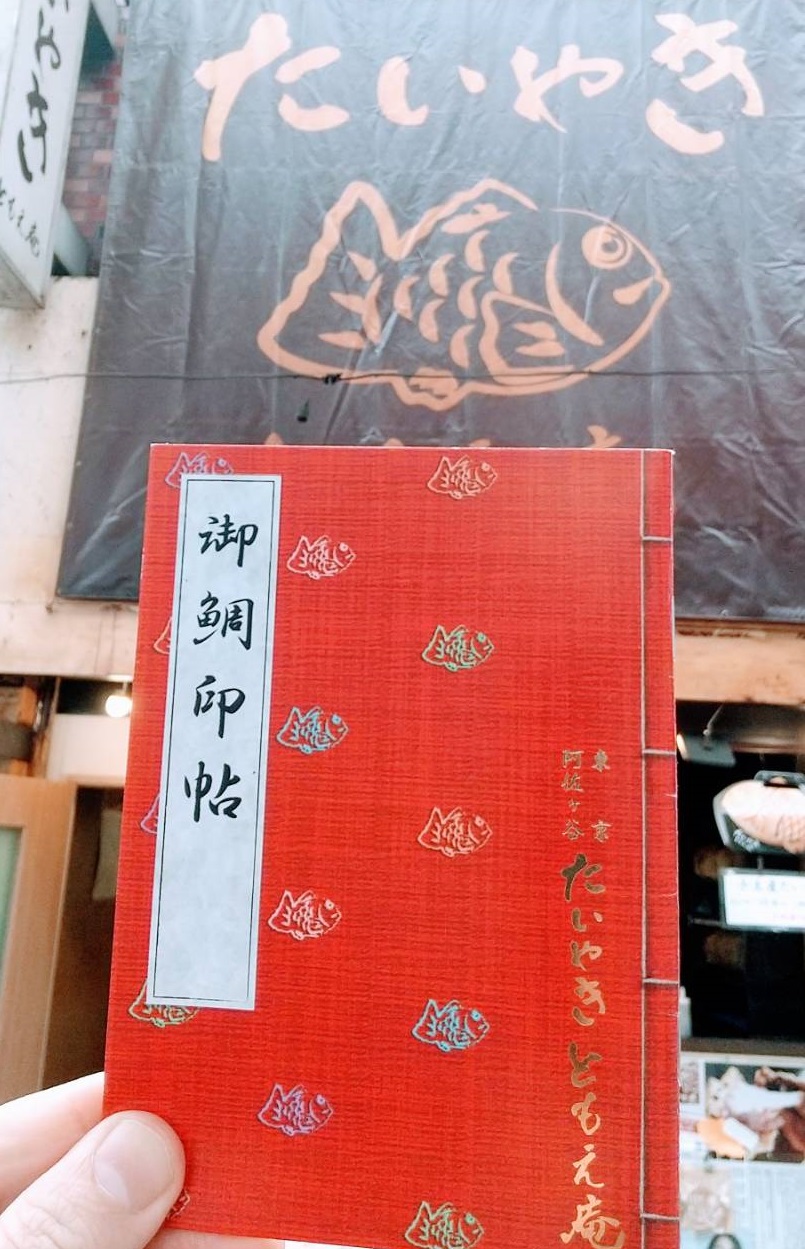 たいやき
やき
ともえ庵
御鯛印帖
東京
阿佐ヶ谷
たいやき ともえ庵